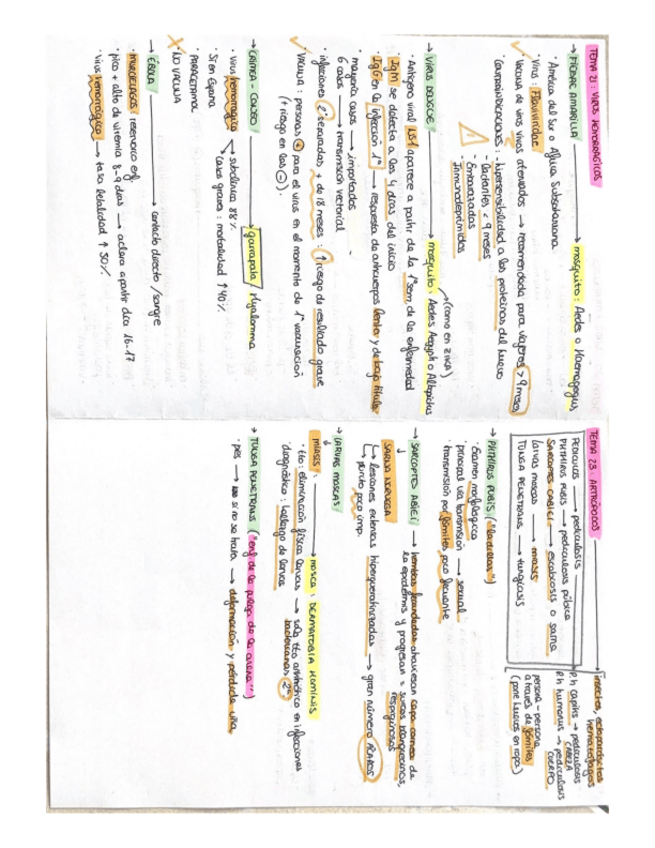 TEMA 21: VIRUS HEMORRÁGICOS
→ FIEBRE AMARILLA → mosquito: Aedes o Haemagogus
· América del Sur o África Subsahariana.
· Virus: Flaviviridae
· VACUNA de virus vivos atenuados → recomendada para viajeros > 9 meses
CONTRAINDICACIONES: - hipersensibilidad a las proteínas del huevo
- Lactantes < 9 meses
- Embarazadas
- Inmunodeprimidos
(como en ZIKA)
→ VIRUS DENGUE → mosquito: Aedes Aegypti o Albopictus
· Antígeno viral NS1 aparece a partir de la 1ª sem de la enfermedad
· IgM se detecta a los 4 días del inicio
· IgG en la infección 1ª → respuesta de anticuerpos lenta y de bajo título
· mayoría casos → importados
6 casos → transmisión vectorial
· infecciones 2ª separadas > de 18 meses: ↑ riesgo de resultado grave
VACUNA: personas + para el virus en el momento de 1ª vacunación
(+ riesgo en las -).
→ CRIMEA-CONGO → garrapata Hyalomma
· virus hemorrágico → subclínica 88%
→ casos graves: mortalidad ↑ 40%
· Sí en España
· PARACETAMOL
X NO VACUNA
→ ÉBOLA → contacto directo / sangre
· MURCIÉLAGOS: reservorio enf.
· pico + alto de viremia 8-9 días → aclara a partir día 16-17
· virus hemorrágico → tasa letalidad ↑ 50%
TEMA 23: ARTRÓPODOS → insectos, ectoparásitos hematófagos
PEDICULUS → pediculosis
PHTHIRUS PUBIS → pediculosis púbica
SARCOPTES SCABIEI → escabiosis o sarna
larvas moscas → miasis
TUNGA PENETRANS → tungiasis
P. h capitis → pediculosis CABEZA
P. h humanus → pediculosis CUERPO
persona - persona
a través de fómites
(pone huevos en ropa)
→ PHTHIRUS PUBIS ("ladillas")
· Examen morfológico
· principal vía transmisión → sexual
· transmisión por fómites poco frecuente
→ SARCOPTES SCABIEI → hembras fecundadas atraviesan capa córnea de
la epidermis y progresan → surcos intraepidérmicos,
SARNA NORUEGA
→ lesiones extensas hiperqueratinizadas → gran número ÁCAROS
→ prurito poco imp.
→ LARVAS MOSCAS
MIASIS: → MOSCA: DERMATOBIA HOMINIS
· tto: eliminación física larvas → solo tto antibiótico en infecciones
bacterianas 2ª
· diagnóstico: hallazgo de larvas
→ TUNGA PENETRANS ("enf de la pulga de la arena")
· pies → si no se trata → deformación y pérdida uña